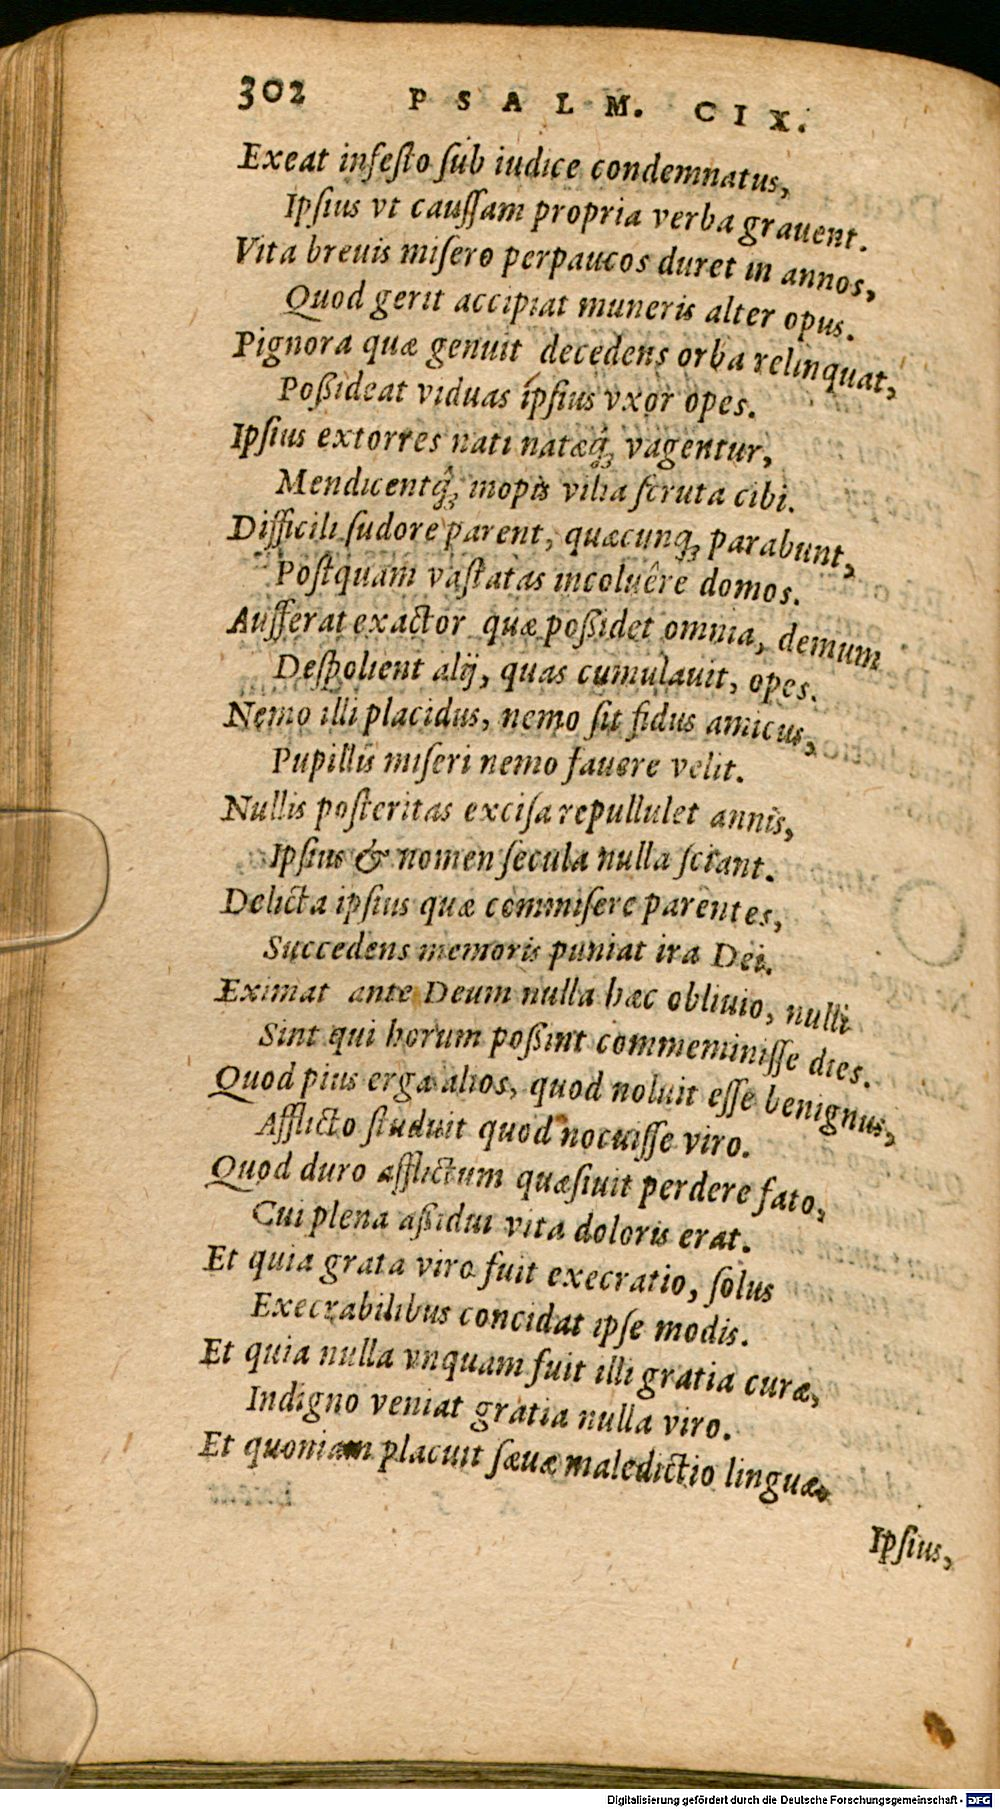 302 PSALM. CIX.
Exeat infesto sub iudice condemnatus,
Ipsius vt caussam propria verba grauent.
Vita breuis misero perpaucos duret in annos,
Quod gerit accipiat muneris alter opus.
Pignora quæ genuit decedens orba relinquat,
Poßideat viduas ipsius vxor opes.
Ipsius extorres nati natæq́ꝫ vagentur,
Mendicentq́ꝫ inopis vilia scruta cibi.
Difficili sudore parent, quæcunqꝫ parabunt,
Postquàm vastatas incoluêre domos.
Aufferat exactor quæ poßidet omnia, demum
Despolient alij, quas cumulauit, opes.
Nemo illi placidus, nemo sit fidus amicus,
Pupillis miseri nemo fauere velit.
Nullis posteritas excisa repullulet annis,
Ipsius & nomen secula nulla sciant.
Delicta ipsius quæ commisere parentes,
Succedens memoris puniat ira Dei.
Eximat ante Deum nulla hæc obliuio, nulli
Sint qui horum poßint commeminisse dies.
Quod pius erga alios, quod noluit esse benignus,
Afflicto studuit quod nocuisse viro.
Quod duro afflictum quæsiuit perdere fato,
Cui plena aßidui vita doloris erat.
Et quia grata viro fuit execratio, solus
Execrabilibus concidat ipse modis.
Et quia nulla vnquam fuit illi gratia curæ,
Indigno veniat gratia nulla viro.
Et quoniam placuit sæuæ maledictio linguæ,
Ipsius,
Digitalisierung gefördert durch die Deutsche Forschungsgemeinschaft - DFG